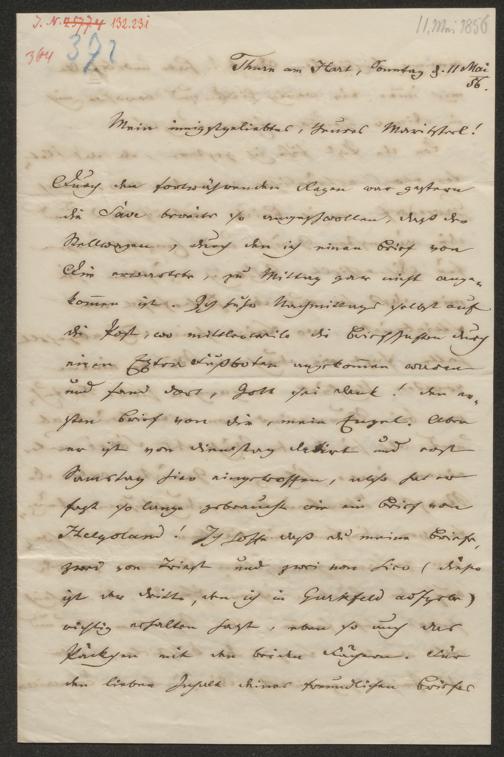 J. N. 25774 132.231
11. Mai 1856
364
392
Thurn am Hart, Sonntag d. 11 Mai
56.
Mein innigstgeliebtes, theures Mariherl!
Durch den fortwährenden Regen war gestern
die Save bereits so angeschwollen, daß der
Stellwagen, durch den ich einen Brief von
Dir erwartete, zu Mittag gar nicht ange-
kommen ist. Ich fuhr Nachmittags selbst auf
die Post, wo mittlerweile die Briefschaften durch
einen Extra Fußboten angekommen waren
und fand dort, Gott sei Dank! den er-
sten Brief von dir, mein Engel. Aber
er ist von Dienstag datirt und erst
Samstag hier eingetroffen, also hat er
fast so lange gebraucht wie ein Brief von
Helgoland! Ich hoffe daß du meine Briefe,
zwei von Triest und zwei von hier (dieses
ist der dritte, den ich in Gurkfeld aufgebe)
richtig erhalten hast, eben so auch das
Päckchen mit den beiden Tüchern. Für
den lieben Inhalt deines freundlichen Briefes